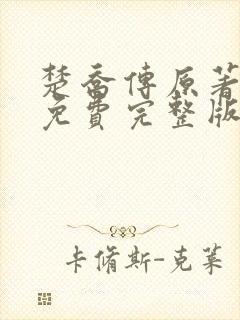 楚喬傳原著
免費完整版
卡脩斯-克萊